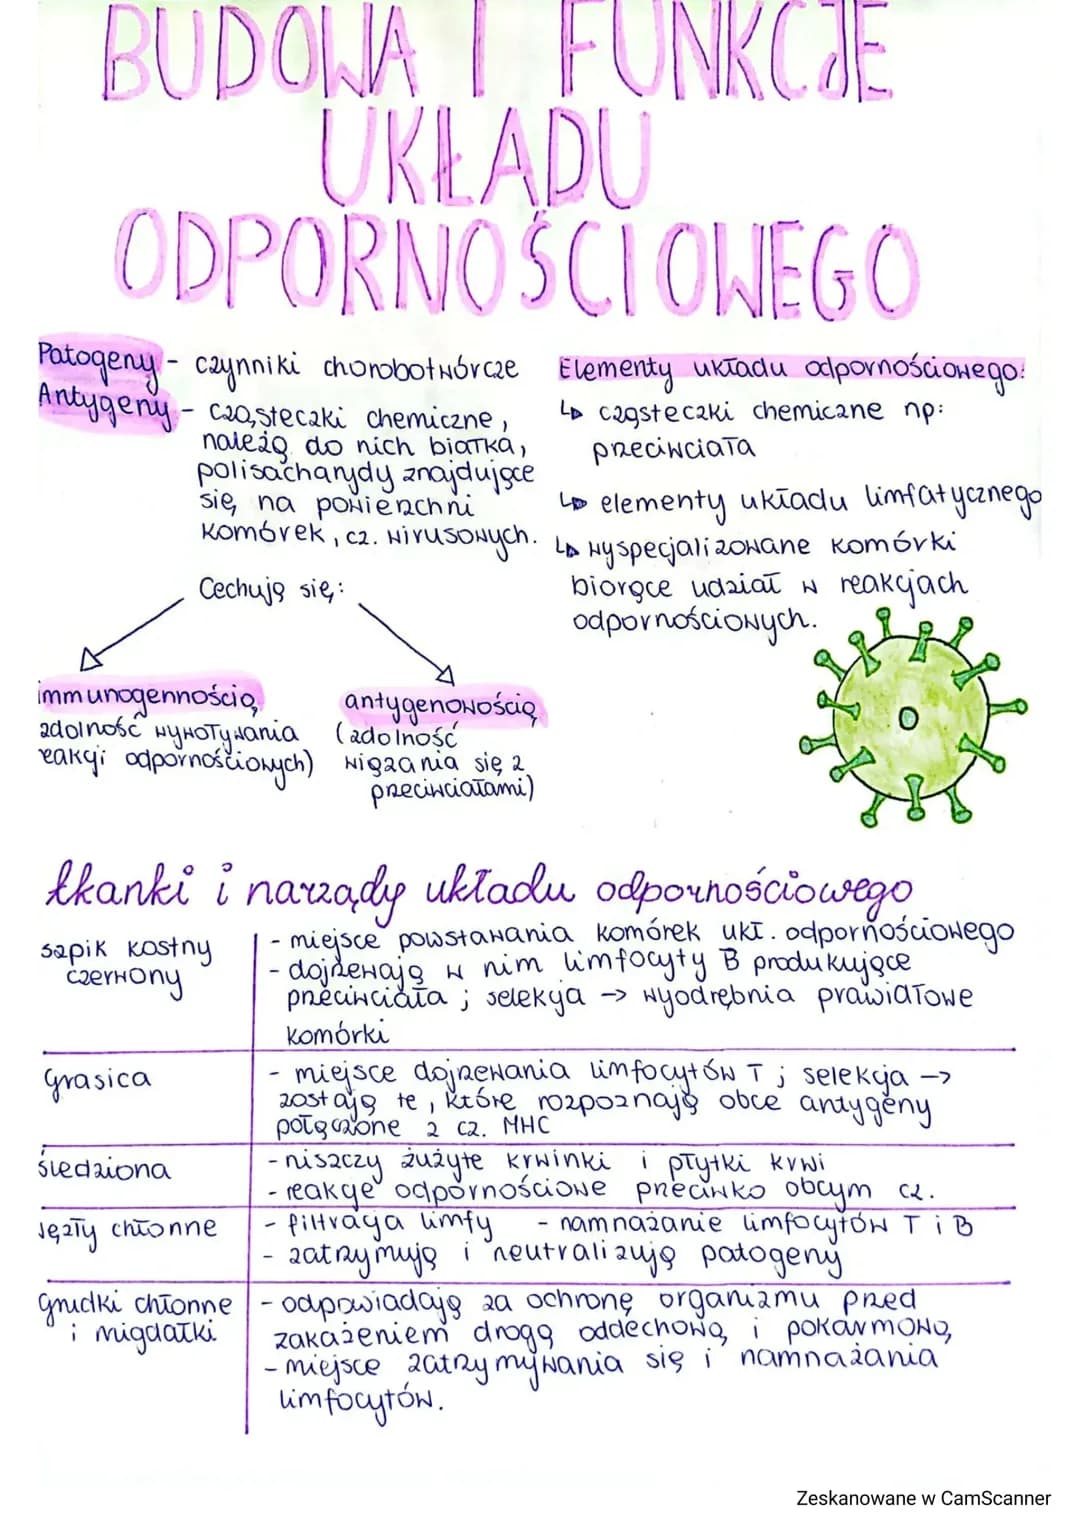 BUDOWA I FUNKCJE
UKŁADU
ODPORNOŚCIOWEGO
Patogeny - czynniki chorobotwórcze
Antygeny - cząsteczki chemiczne,
należą do nich białka,
polisacharydy znajdujące
się na powierzchni
komórek, cz. wirusowych.
Cechują się:
immunogennością
zdolność wywoływania
reakcji odpornościowych)
antygenowością
(zdolność
wiązania się z
przeciwciałami)
Elementy układu odpornościowego:
↳ cząsteczki chemiczne np:
przeciwciała
↳ elementy układu limfatycznego
↳ wyspecjalizowane komórki
biorące udział w reakcjach
odpornościowych.
tkanki i narządy układu odpornościowego
szpik kostny
czerwony
- miejsce powstawania komórek ukł. odpornościowego
- dojrzewają w nim limfocyty B produkujące
przeciwciała ; selekcja -> wyodrębnia prawidłowe
komórki
grasica
- miejsce dojrzewania limfocytów T ; selekcja ->
zostają te, które rozpoznają obce antygeny
połączone z cz. MHC
śledziona
- niszczy zużyte krwinki i płytki krwi
- reakcje odpornościowe przeciwko obcym cz.
węzły chłonne
- filtracja limfy - namnażanie limfocytów T i B
- zatrzymują i neutralizują patogeny
grudki chłonne
i migdałki
- odpowiadają za ochronę organizmu przed
zakażeniem drogą oddechową i pokarmową,
- miejsce zatrzymywania się i namnażania
limfocytów.
Zeskanowane w CamScanner